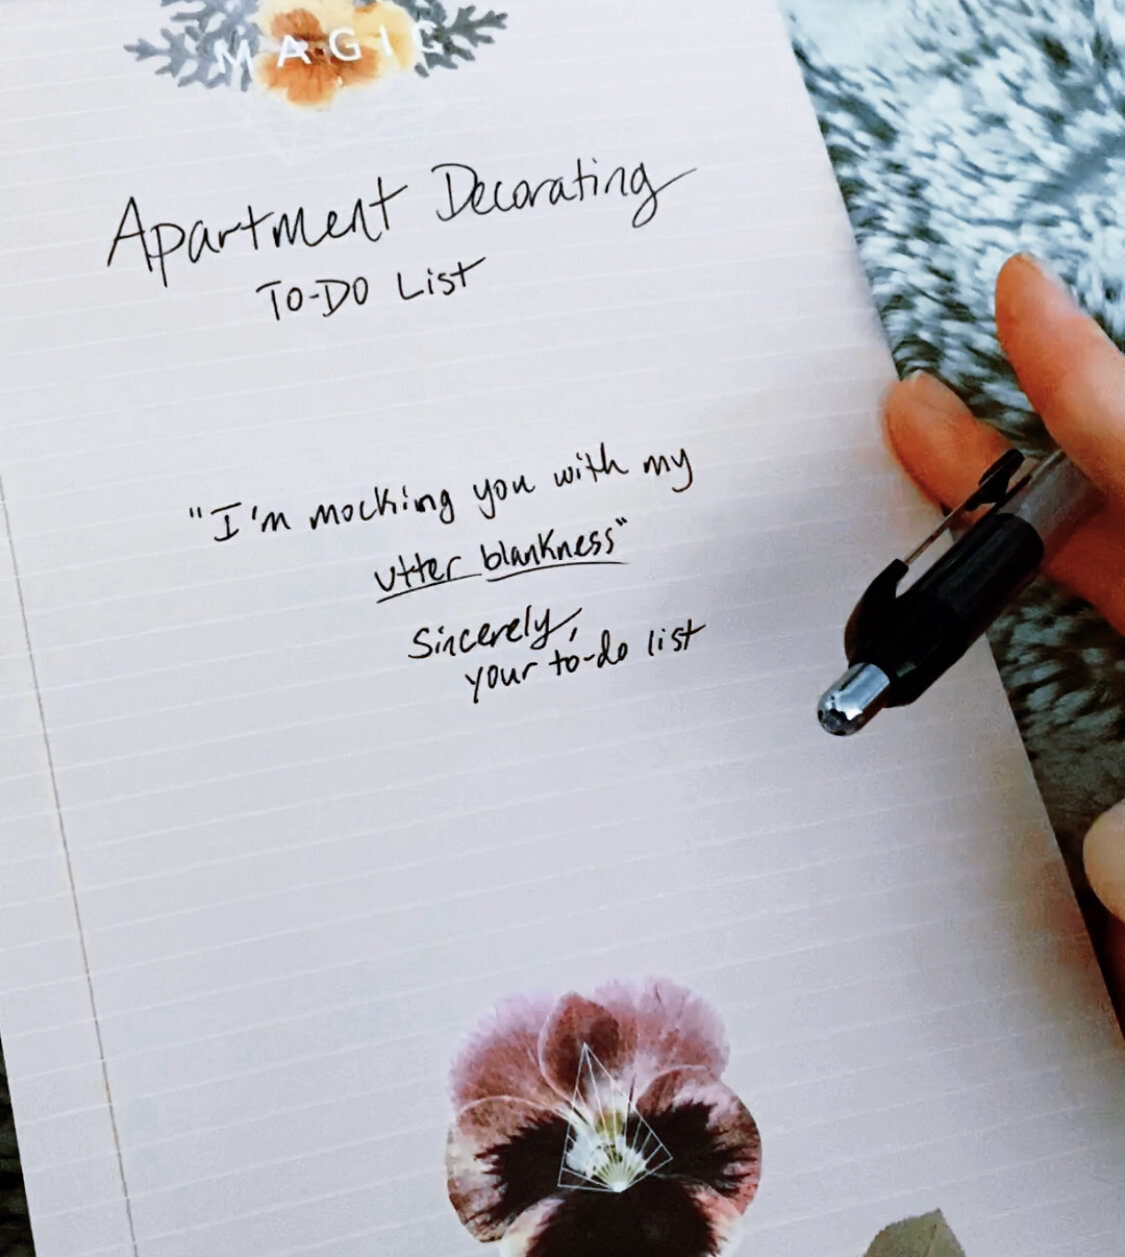 MAGIC
Apartment Decorating
TO-DO List
"I'm mocking you with my
utter blankness"
Sincerely,
your to-do list